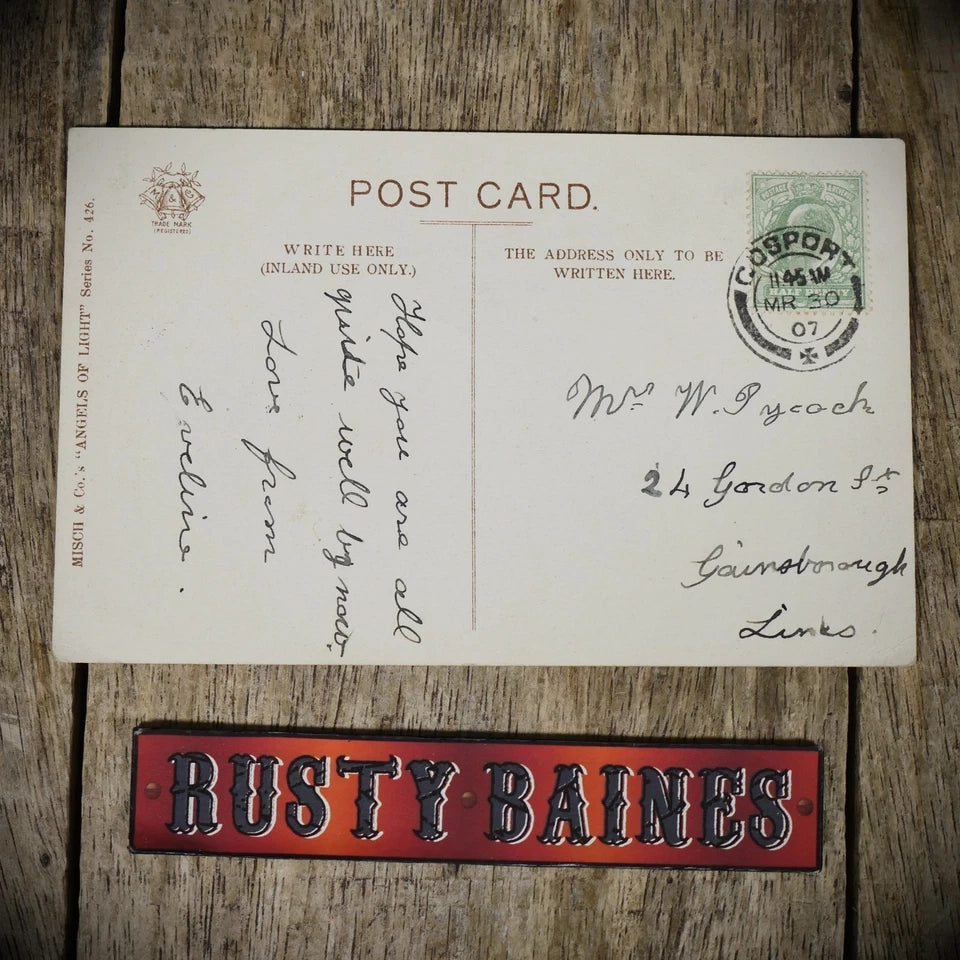 MISCH & Co.'s "ANGELS OF LIGHT" Series No. 426.
TRADE MARK
(REGISTERED)
POST CARD.
WRITE HERE
(INLAND USE ONLY.)
THE ADDRESS ONLY TO BE
WRITTEN HERE.
POSTAGE & REVENUE
HALF PENNY
GOSPORT
11 45 AM
MR 30
07
Hope you are all
quite well by now.
Love from
Eveline.
Mrs W. Pycock
24 Gordon St
Gainsborough
Lincs.
RUSTY BAINES